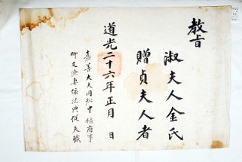 教旨
淑夫人金氏
贈貞夫人者
道光二十六年正月 日
嘉善大夫同知中樞府事
妻依法典從夫職